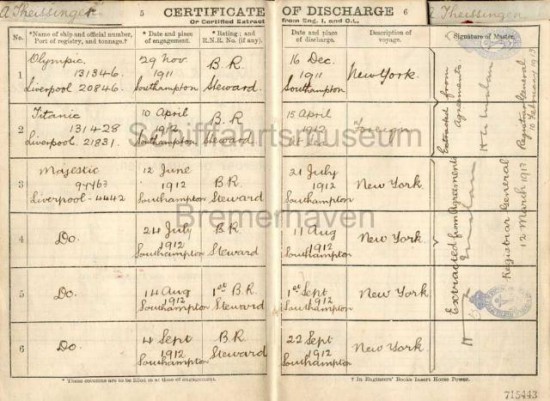 A Theissinger 5 CERTIFICATE
Or Certified Extract
OF DISCHARGE 6 A Theissinger
from Eng. 1, and O.L.
No. *Name of ship and official number, Port of registry, and tonnage.† *Date and place of engagement. *Rating; and R.N.R. No. (if any). Date and place of discharge. Description of voyage. Signature of Master.
1 Olympic 29 Nov B.R. 16 Dec.
131346. 1911 1911 New York.
Liverpool 20846. Southampton Steward. Southampton
2 Titanic 10 April B.R 15 April
131428 1912 1912 Foreign
Liverpool. 21831. Southampton Steward
3 Majestic 12 June B.R. 21 July
1912 1912 New York.
Liverpool Southampton Steward Southampton
4 Do. 24 July B.R. 11 Aug
1912 1912 New York.
Southampton Steward Southampton
5 Do. 14 Aug 1st B.R. 1st Sept
1912 1912 New York.
Southampton Steward Southampton
6 Do. 4 Sept B.R. 22 Sept
1912 1912 New York.
Southampton Steward Southampton
Extracted from
Agreements
Registrar General
Extracted from Agreements
Registrar General
12 March 1917
Schifffahrtsmuseum
Bremerhaven
† In Engineers' Books Insert Horse Power.
715443